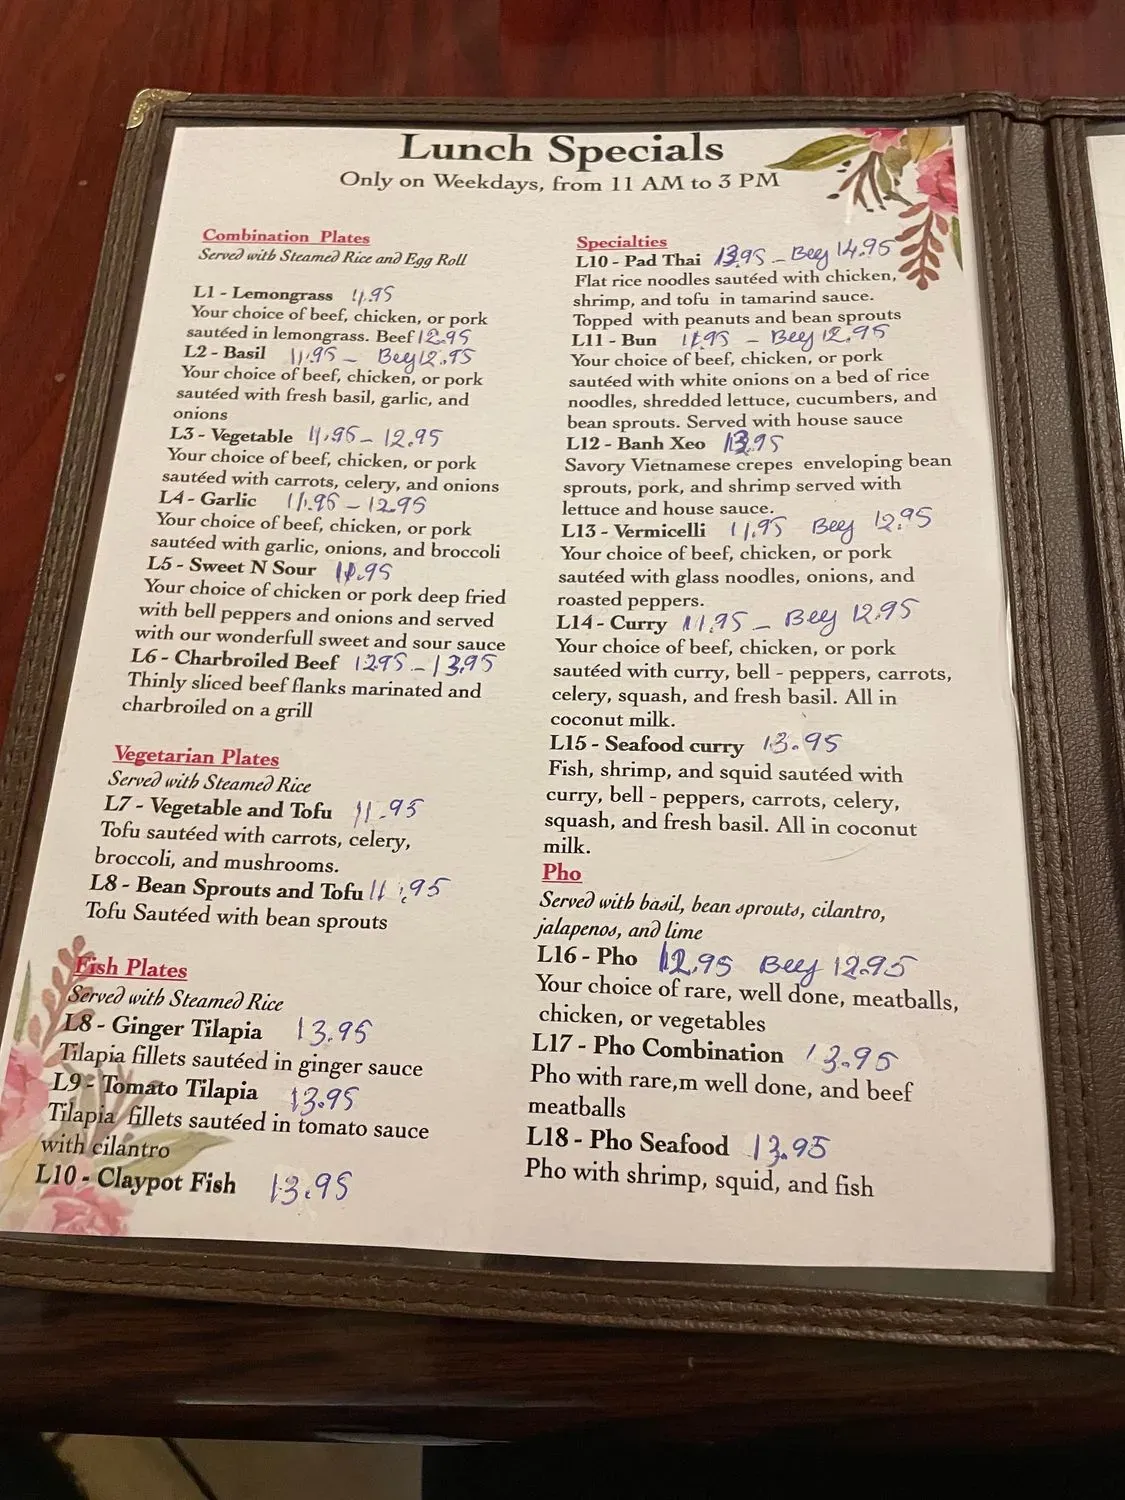 Lunch Specials
Only on Weekdays, from 11 AM to 3 PM
Combination Plates
Served with Steamed Rice and Egg Roll
L1 - Lemongrass 11.95
Your choice of beef, chicken, or pork
sautéed in lemongrass. Beef 12.95
L2 - Basil 11.95 - Beef 12.95
Your choice of beef, chicken, or pork
sautéed with fresh basil, garlic, and
onions
L3 - Vegetable 11.95 - 12.95
Your choice of beef, chicken, or pork
sautéed with carrots, celery, and onions
L4 - Garlic 11.95 - 12.95
Your choice of beef, chicken, or pork
sautéed with garlic, onions, and broccoli
L5 - Sweet N Sour 11.95
Your choice of chicken or pork deep fried
with bell peppers and onions and served
with our wonderfull sweet and sour sauce
L6 - Charbroiled Beef 12.95 - 13.95
Thinly sliced beef flanks marinated and
charbroiled on a grill
Vegetarian Plates
Served with Steamed Rice
L7 - Vegetable and Tofu 11.95
Tofu sautéed with carrots, celery,
broccoli, and mushrooms.
L8 - Bean Sprouts and Tofu 11.95
Tofu Sautéed with bean sprouts
Fish Plates
Served with Steamed Rice
L8 - Ginger Tilapia 13.95
Tilapia fillets sautéed in ginger sauce
L9 - Tomato Tilapia 13.95
Tilapia fillets sautéed in tomato sauce
with cilantro
L10 - Claypot Fish 13.95
Specialties
L10 - Pad Thai 13.95 - Beef 14.95
Flat rice noodles sautéed with chicken,
shrimp, and tofu in tamarind sauce.
Topped with peanuts and bean sprouts
L11 - Bun 11.95 - Beef 12.95
Your choice of beef, chicken, or pork
sautéed with white onions on a bed of rice
noodles, shredded lettuce, cucumbers, and
bean sprouts. Served with house sauce
L12 - Banh Xeo 13.95
Savory Vietnamese crepes enveloping bean
sprouts, pork, and shrimp served with
lettuce and house sauce.
L13 - Vermicelli 11.95 Beef 12.95
Your choice of beef, chicken, or pork
sautéed with glass noodles, onions, and
roasted peppers.
L14 - Curry 11.95 - Beef 12.95
Your choice of beef, chicken, or pork
sautéed with curry, bell - peppers, carrots,
celery, squash, and fresh basil. All in
coconut milk.
L15 - Seafood curry 13.95
Fish, shrimp, and squid sautéed with
curry, bell - peppers, carrots, celery,
squash, and fresh basil. All in coconut
milk.
Pho
Served with basil, bean sprouts, cilantro,
jalapenos, and lime
L16 - Pho 12.95 Beef 12.95
Your choice of rare, well done, meatballs,
chicken, or vegetables
L17 - Pho Combination 13.95
Pho with rare,m well done, and beef
meatballs
L18 - Pho Seafood 13.95
Pho with shrimp, squid, and fish